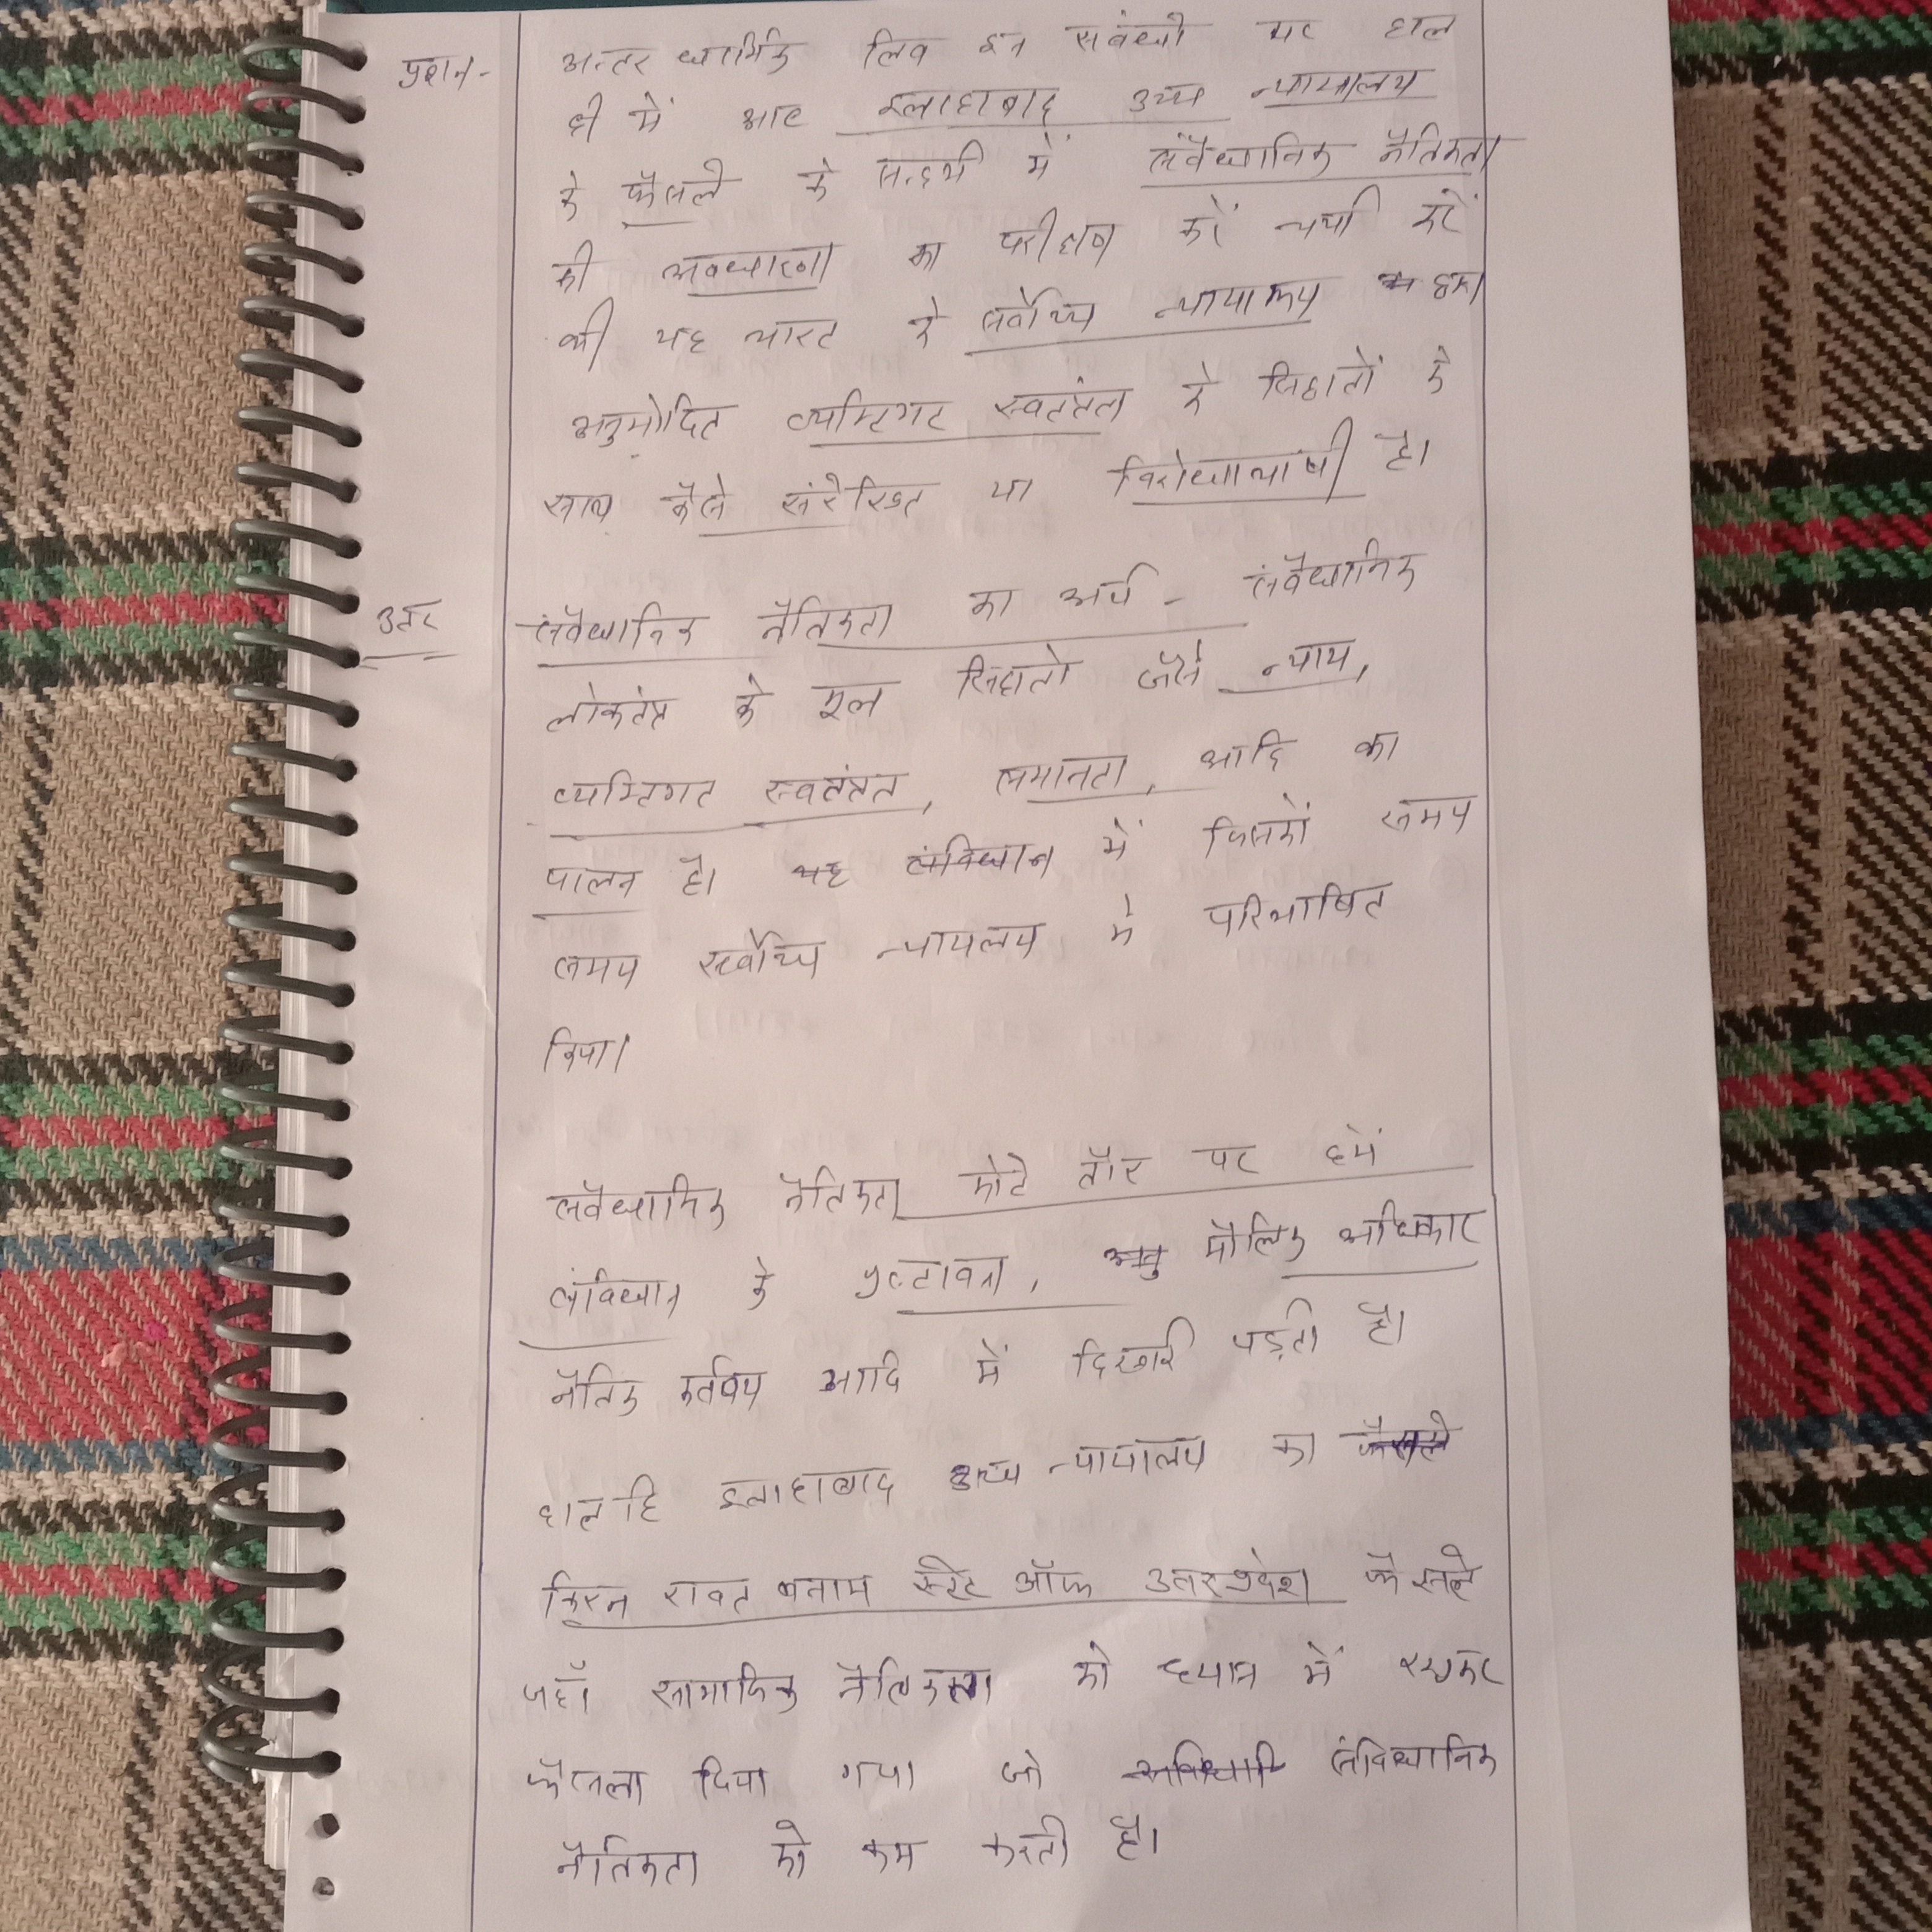 प्रश्न- अन्तर धार्मिक लिव इन संबंधो पर हाल
ही में आए इलाहाबाद उच्च न्यायालय
के फैसले के सन्दर्भ में संवैधानिक नैतिकता
की अवधारणा का परीक्षण करें चर्चा करें
की यह भारत के सर्वोच्च न्यायालय द्वारा
अनुमोदित व्यक्तिगत स्वतंत्रता के सिद्दातों के
साथ कैसे संरेखित या विरोधाभाषी है।
उत्तर संवैधानिक नैतिकता का अर्थ - संवैधानिक
लोकतंत्र के मूल सिद्दातो जैसे न्याय,
व्यक्तिगत स्वतंत्रता, समानता, आदि का
पालन है। यह संविधान में जिसको समय
समय सर्वोच्च न्यायलय ने परिभाषित
किया।
संवैधानिक नैतिकता मोटे तौर पर हमें
संविधान के प्रस्तावना, मौलिक अधिकार
नैतिक कर्तव्य आदि में दिखाई पड़ती है।
हालहि इलाहाबाद उच्च न्यायालय का फैसले
किरन रावत बनाम स्टेट ऑफ उत्तरप्रदेश फैसले
जहाँ सामाजिक नैतिकता को ध्यान में रखकर
फैसला दिया गया जो संविधानिक
नैतिकता को कम करती है।